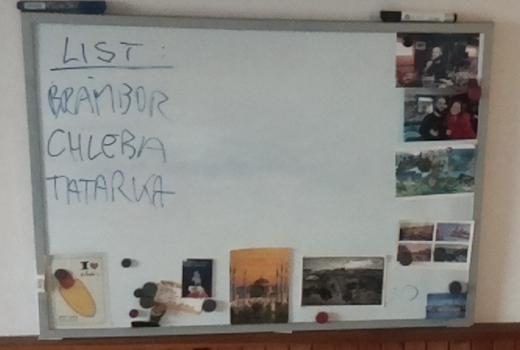 LIST:
BRAMBOR
CHLEBA
TATARKA
I ♥